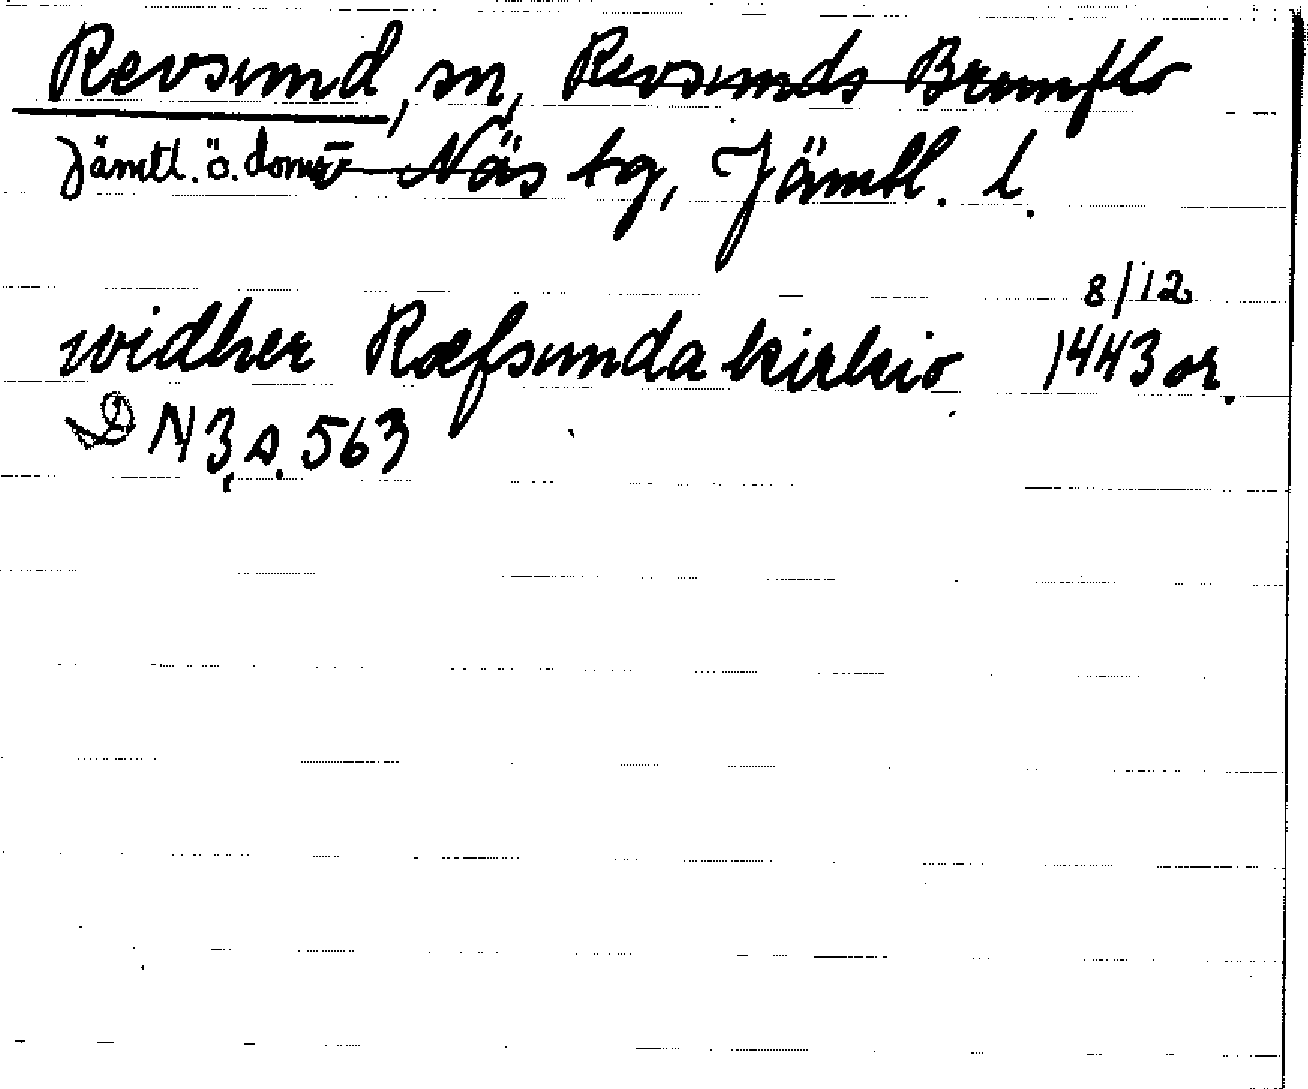 Revsund, sn, Revsunds Brunflo
Jämtl. ö. doms- Näs tg, Jämtl. l.
widher Ræfsunda kirkio 8/12 1443 or.
DN 3, s. 563